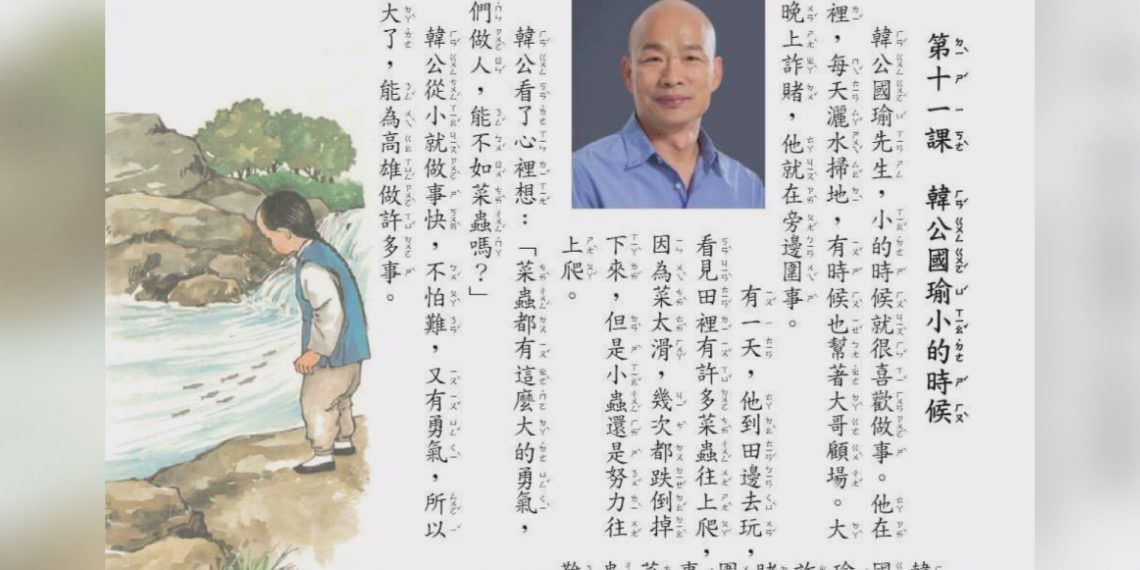 第十一課　韓公國瑜小的時候
韓公國瑜先生，小的時候就很喜歡做事。他在
裡，每天灑水掃地，有時候也幫著大哥顧場。大
晚上詐賭，他就在旁邊圍事。
有一天，他到田邊去玩，
看見田裡有許多菜蟲往上爬，
因為菜太滑，幾次都跌倒掉
下來，但是小蟲還是努力往
上爬。
韓公看了心裡想：「菜蟲都有這麼大的勇氣，
們做人，能不如菜蟲嗎？」
韓公從小就做事快，不怕難，又有勇氣，所以
大了，能為高雄做許多事。